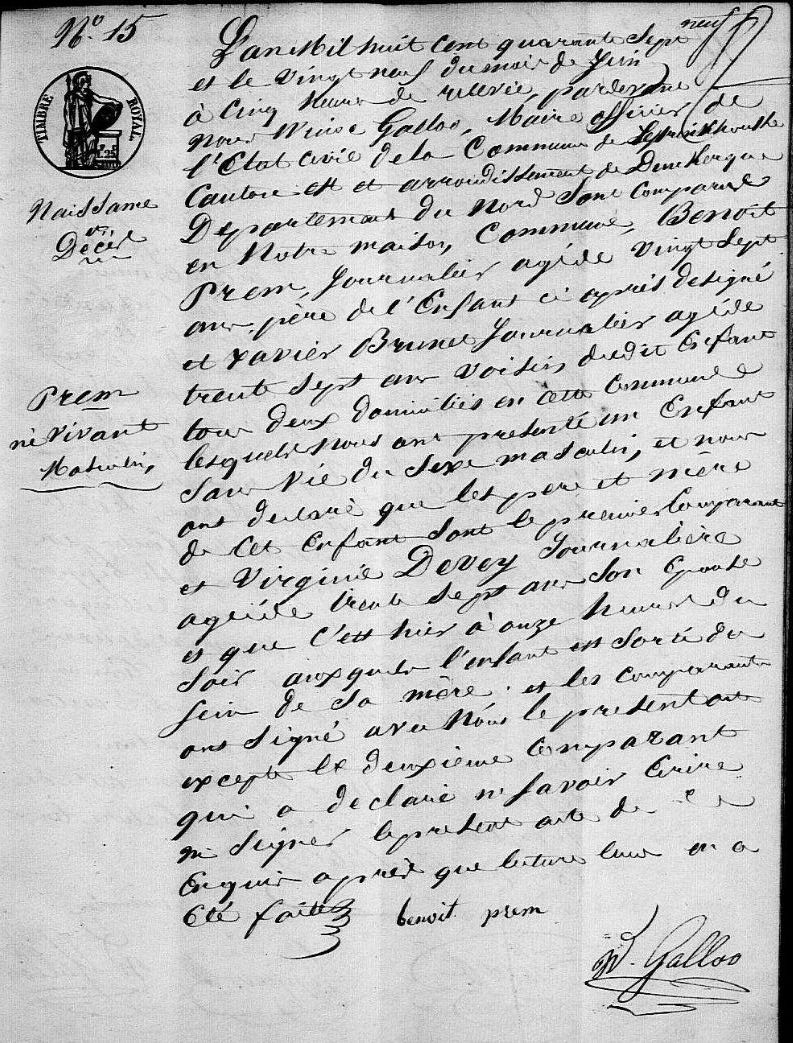 N.° 15
neuf
TIMBRE ROYAL
Naissance
et
Décès
Prem
né vivant
Masculin,
L'an Mil huit cent quarante Sept
et le vingt neuf du mois de Juin
à Cinq heures de relevée, pardevant
nous Winoc Galloo, Maire officier de
l'Etat Civil de la Commune de
Canton Est et arrondissement de Dunkerque
Departement du Nord Sont Comparus
en Notre maison Commune, Benoit
Prem, Journalier agé de Vingt Sept
ans, père de l'Enfant ci après designé
et Xavier Brunet Journalier agé de
trente Sept ans voisin dudit Enfant
tous deux domiciliés en cette Commune
lesquels Nous ont presenté un Enfant
Sans Vie du Sexe masculin, et nous
ont declaré que les pere et mère
de Cet Enfant Sont le premier Comparant
et Virginie Devey Journalière
agée de trente Sept ans Son Epouse
et que C'est hier à onze heures du
Soir auxquels l'enfant est Sorti du
Sein de Sa mère. et les comparants
ont Signé avec Nous le present acte
excepté le deuxième Comparant
qui a declaré ne Savoir Ecrire
ni Signer le present acte de ce
Enquis après que lecture leur en a
été faite
benoit prem
W. Galloo